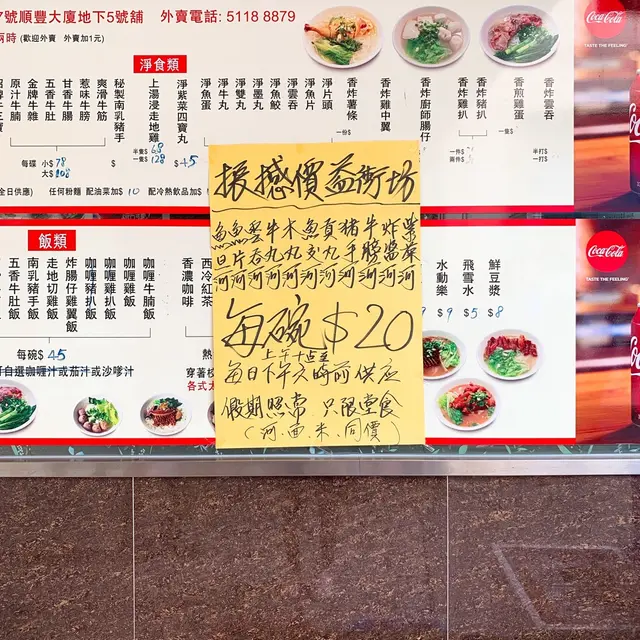 7號順豐大廈地下5號舖 外賣電話: 5118 8879
兩時 (歡迎外賣 外賣加1元)
淨食類
原汁牛腩
金牌牛雜
五香牛肚
甘香牛腸
惹味牛膀
爽滑牛筋
秘製南乳豬手
上湯浸走地雞
淨紫菜四寶丸
淨魚蛋
淨牛丸
淨雙丸
淨墨丸
淨魚餃
淨雲吞
淨魚片
淨片頭
香炸薯條
香炸雞中翼
香炸廚師腸仔
香炸雞扒
香炸豬扒
香煎雞蛋
香炸雲吞
每碟 小$78
大$108
$
半隻$68
一隻$128
$45
一份$
一件$
兩件$
一隻$
半打$
一打$
全日供應) 任何粉麵 配油菜加$ 10 配冷熱飲品加$
飯類
五香牛肚飯
南乳豬手飯
走地切雞飯
炸腸仔雞翼飯
咖喱豬扒飯
咖喱雞扒飯
咖喱雞飯
咖喱牛腩飯
每碗$ 45
可自選咖喱汁或茄汁或沙嗲汁
香濃咖啡
西冷紅茶
熱
各式
水動樂
飛雪水
鮮豆漿
9 $9 $5 $8
震撼價益街坊
每碗$20
上午十點至
每日下午六時前供应
假期照常 只限堂食
(河.面.米.同價)
Coca-Cola
TASTE THE FEELING
Coca-Cola
TASTE THE FEELING